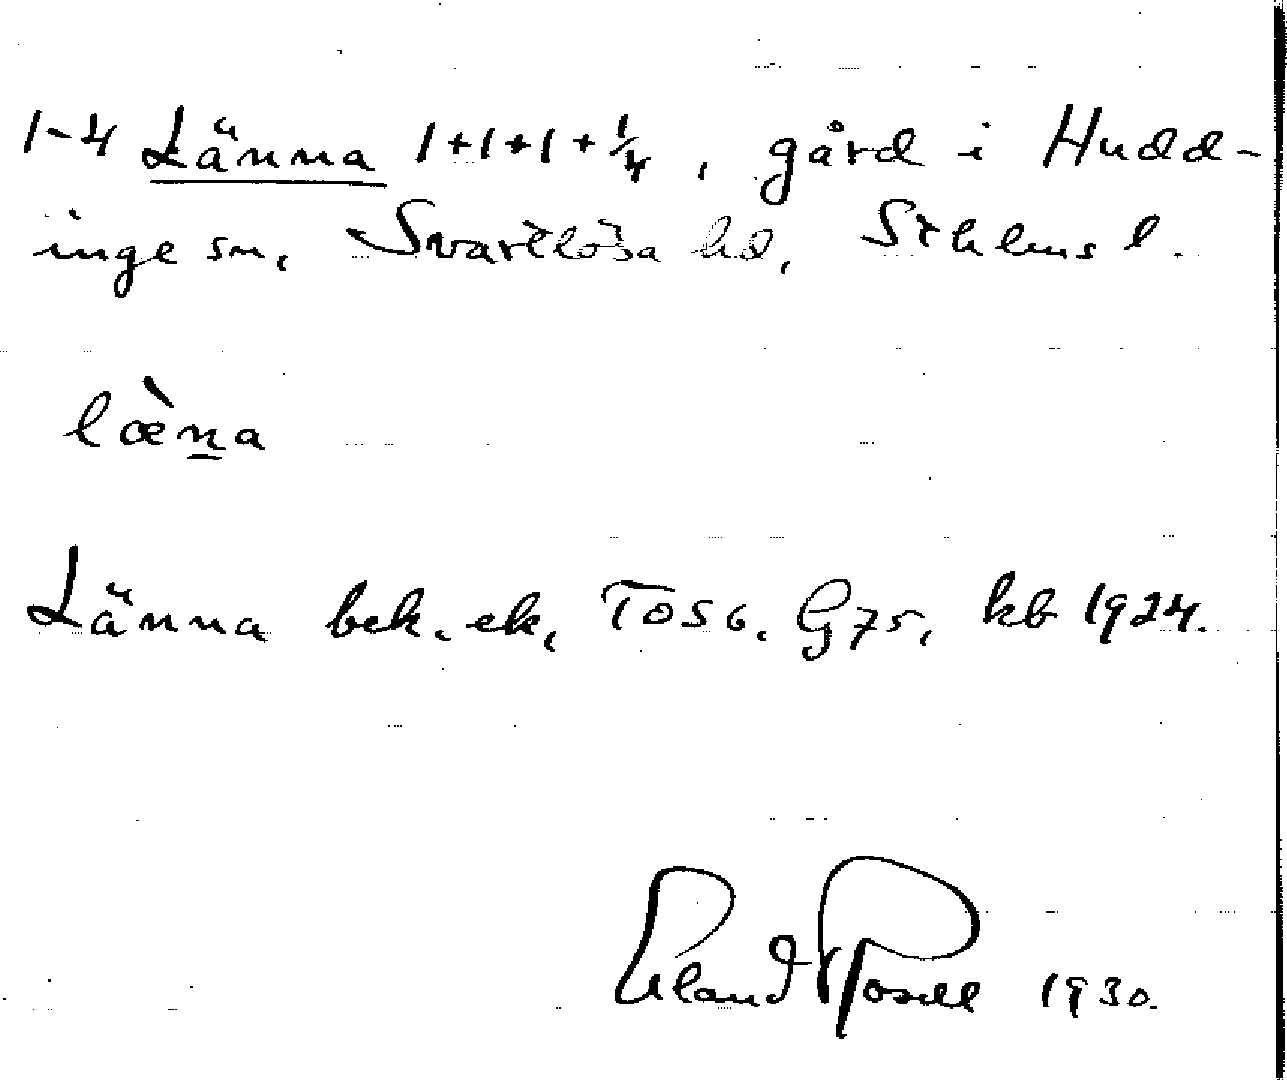 1-4 Länna 1+1+1+1/4, gård i Hudd-
inge sn, Svartlösa hd, Sthlms l.
læ̀na
Länna bek. ek, T056. G75, kb 1924.
Erland Rosell 1930.